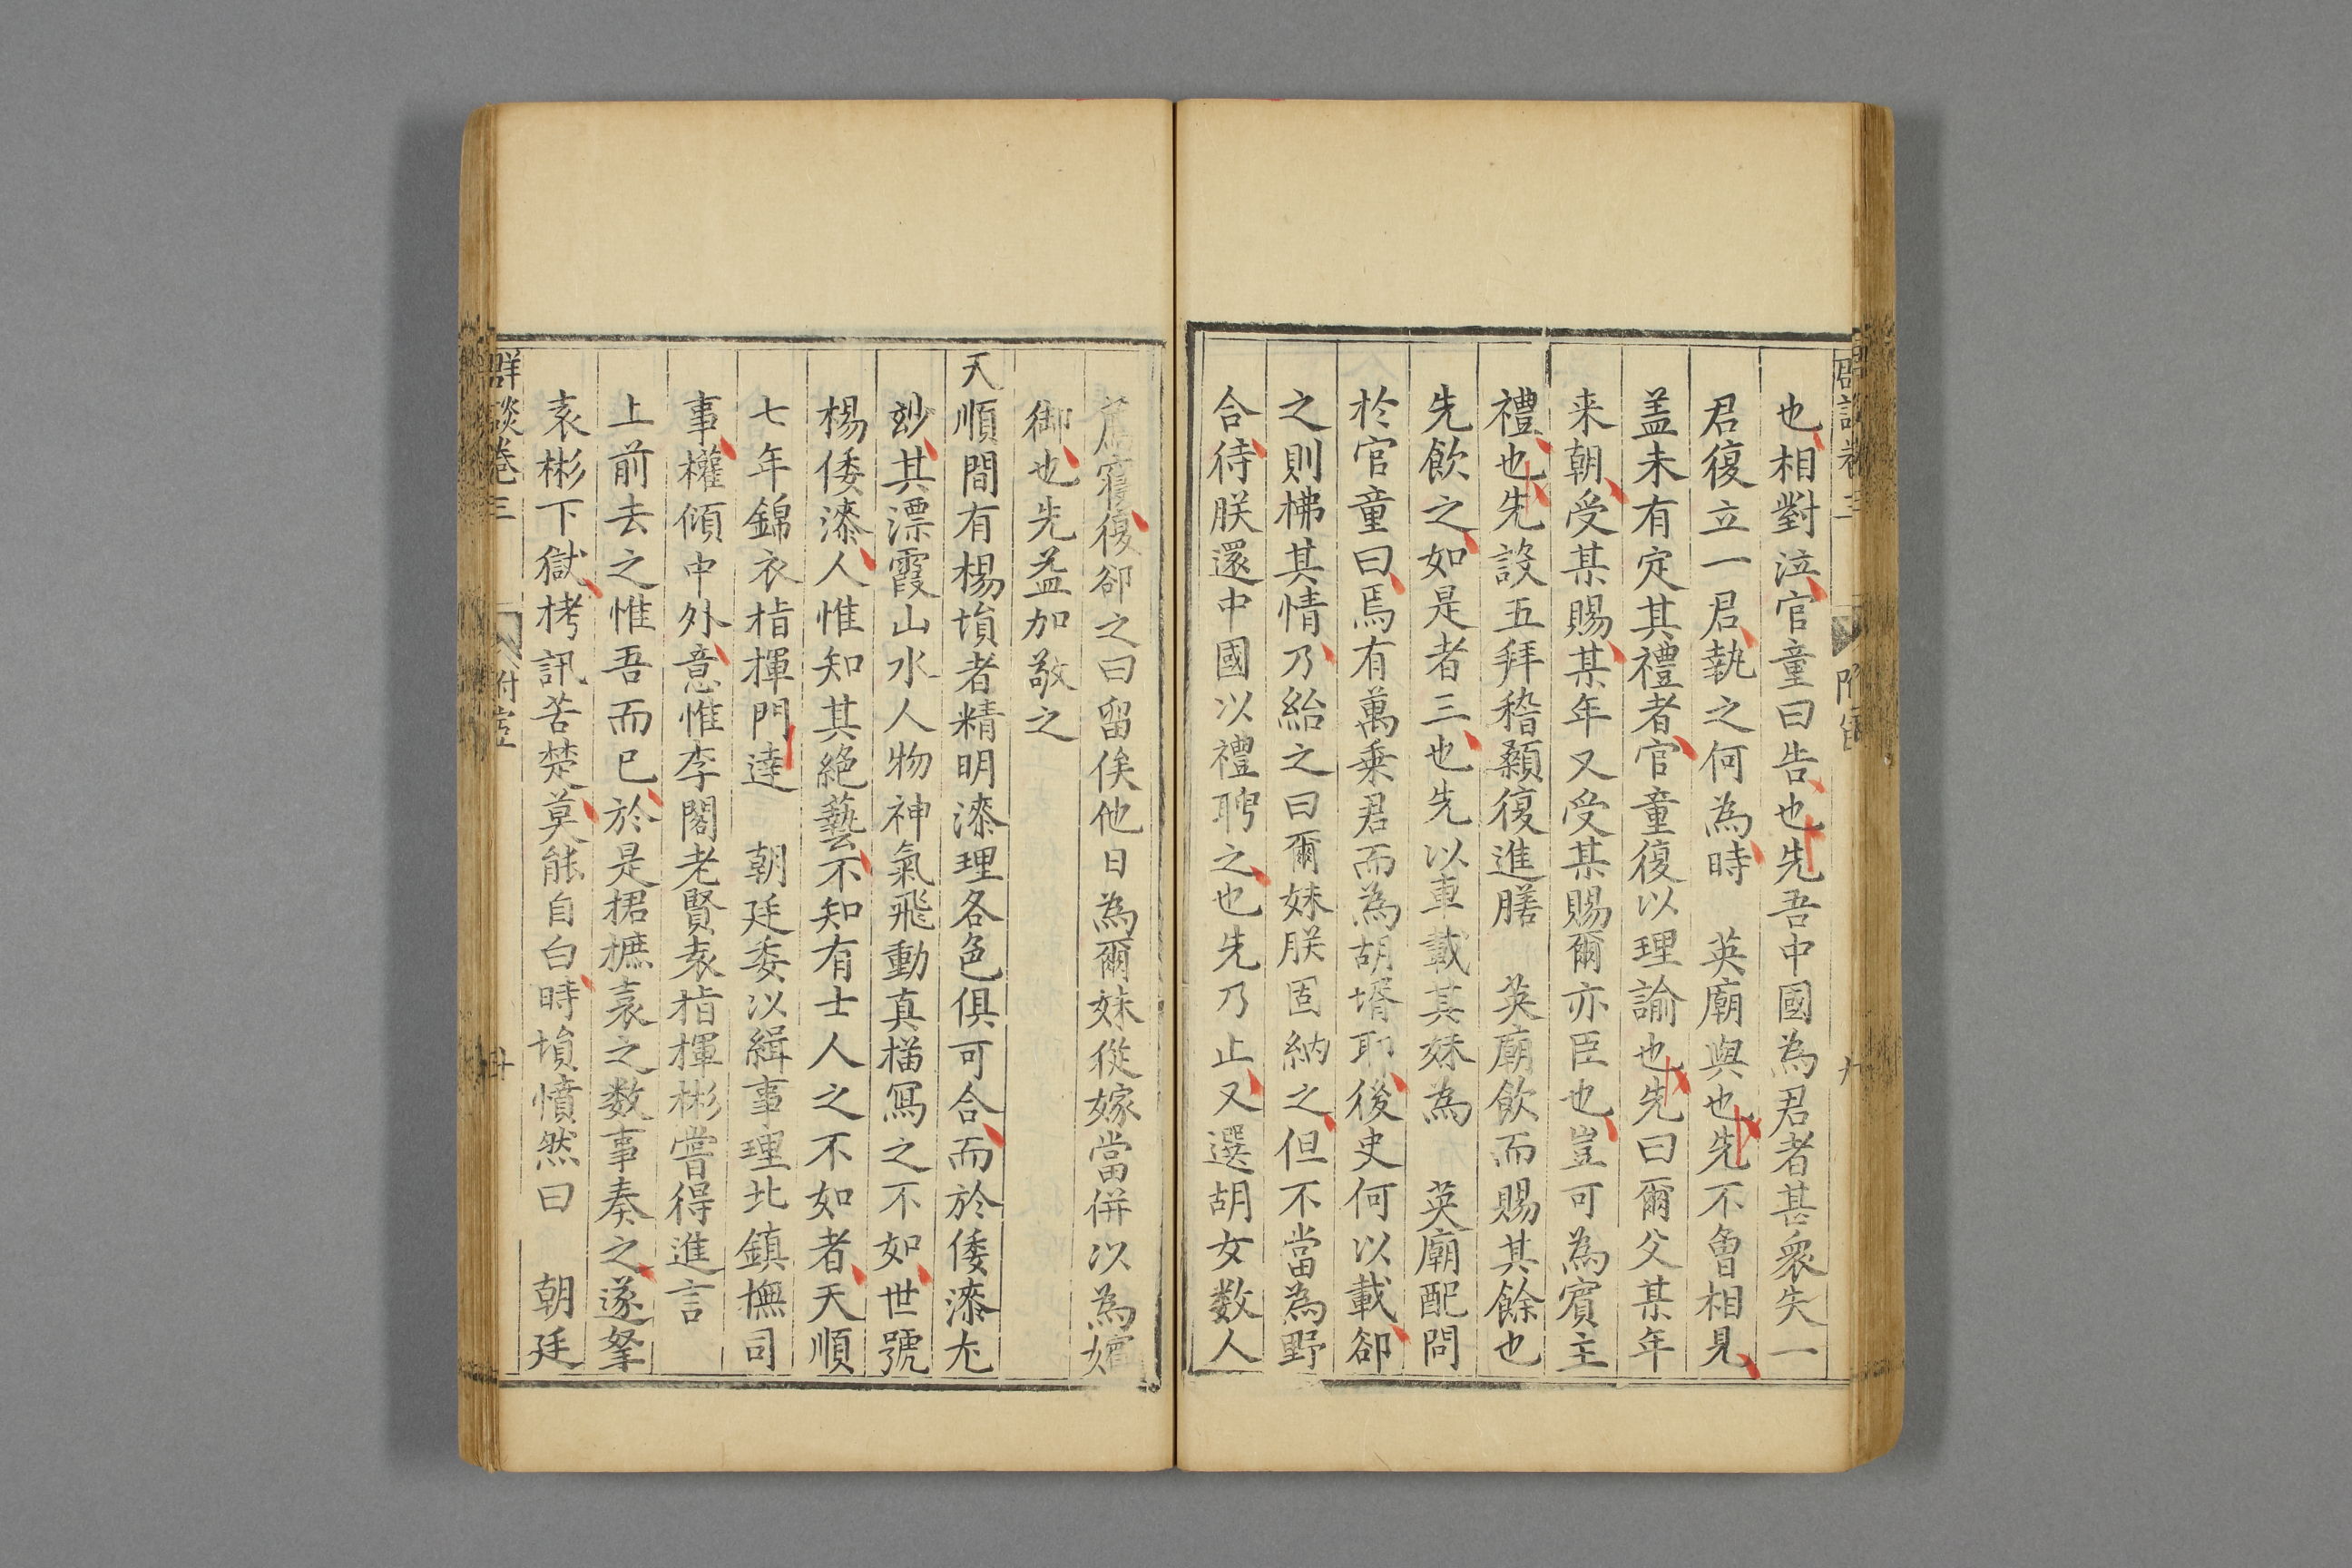 也相對泣官童曰告也先吾中國為君者甚衆失一
君復立一君執之何為時　英廟與也先不魯相見
盖未有定其禮者官童復以理諭也先曰爾父某年
来朝受某賜某年又受某賜爾亦臣也豈可為賓主
禮也先設五拜稽顙復進膳　英廟飲而賜其餘也
先飲之如是者三也先以車載其妹為　英廟配問
於官童曰焉有萬乗君而為胡壻耶後史何以載卻
之則梻其情乃紿之曰爾妹朕固納之但不當為野
合待朕還中國以禮聘之也先乃止又選胡女数人
薦寢復卻之曰留俟他日為爾妹從嫁當併以為嬪
御也先益加敬之
天順間有楊塤者精明漆理各色俱可合而於倭漆尤
玅其漂霞山水人物神氣飛動真描寫之不如世號
楊倭漆人惟知其絶藝不知有士人之不如者天順
七年錦衣指揮門達　朝廷委以緝事理北鎮撫司
事權傾中外意惟李閣老賢袁指揮彬嘗得進言
上前去之惟吾而已於是捃摭袁之数事奏之遂拏
袁彬下獄栲訊苦楚莫能自白時塤憤然曰　朝廷
群談卷三
附空
廿